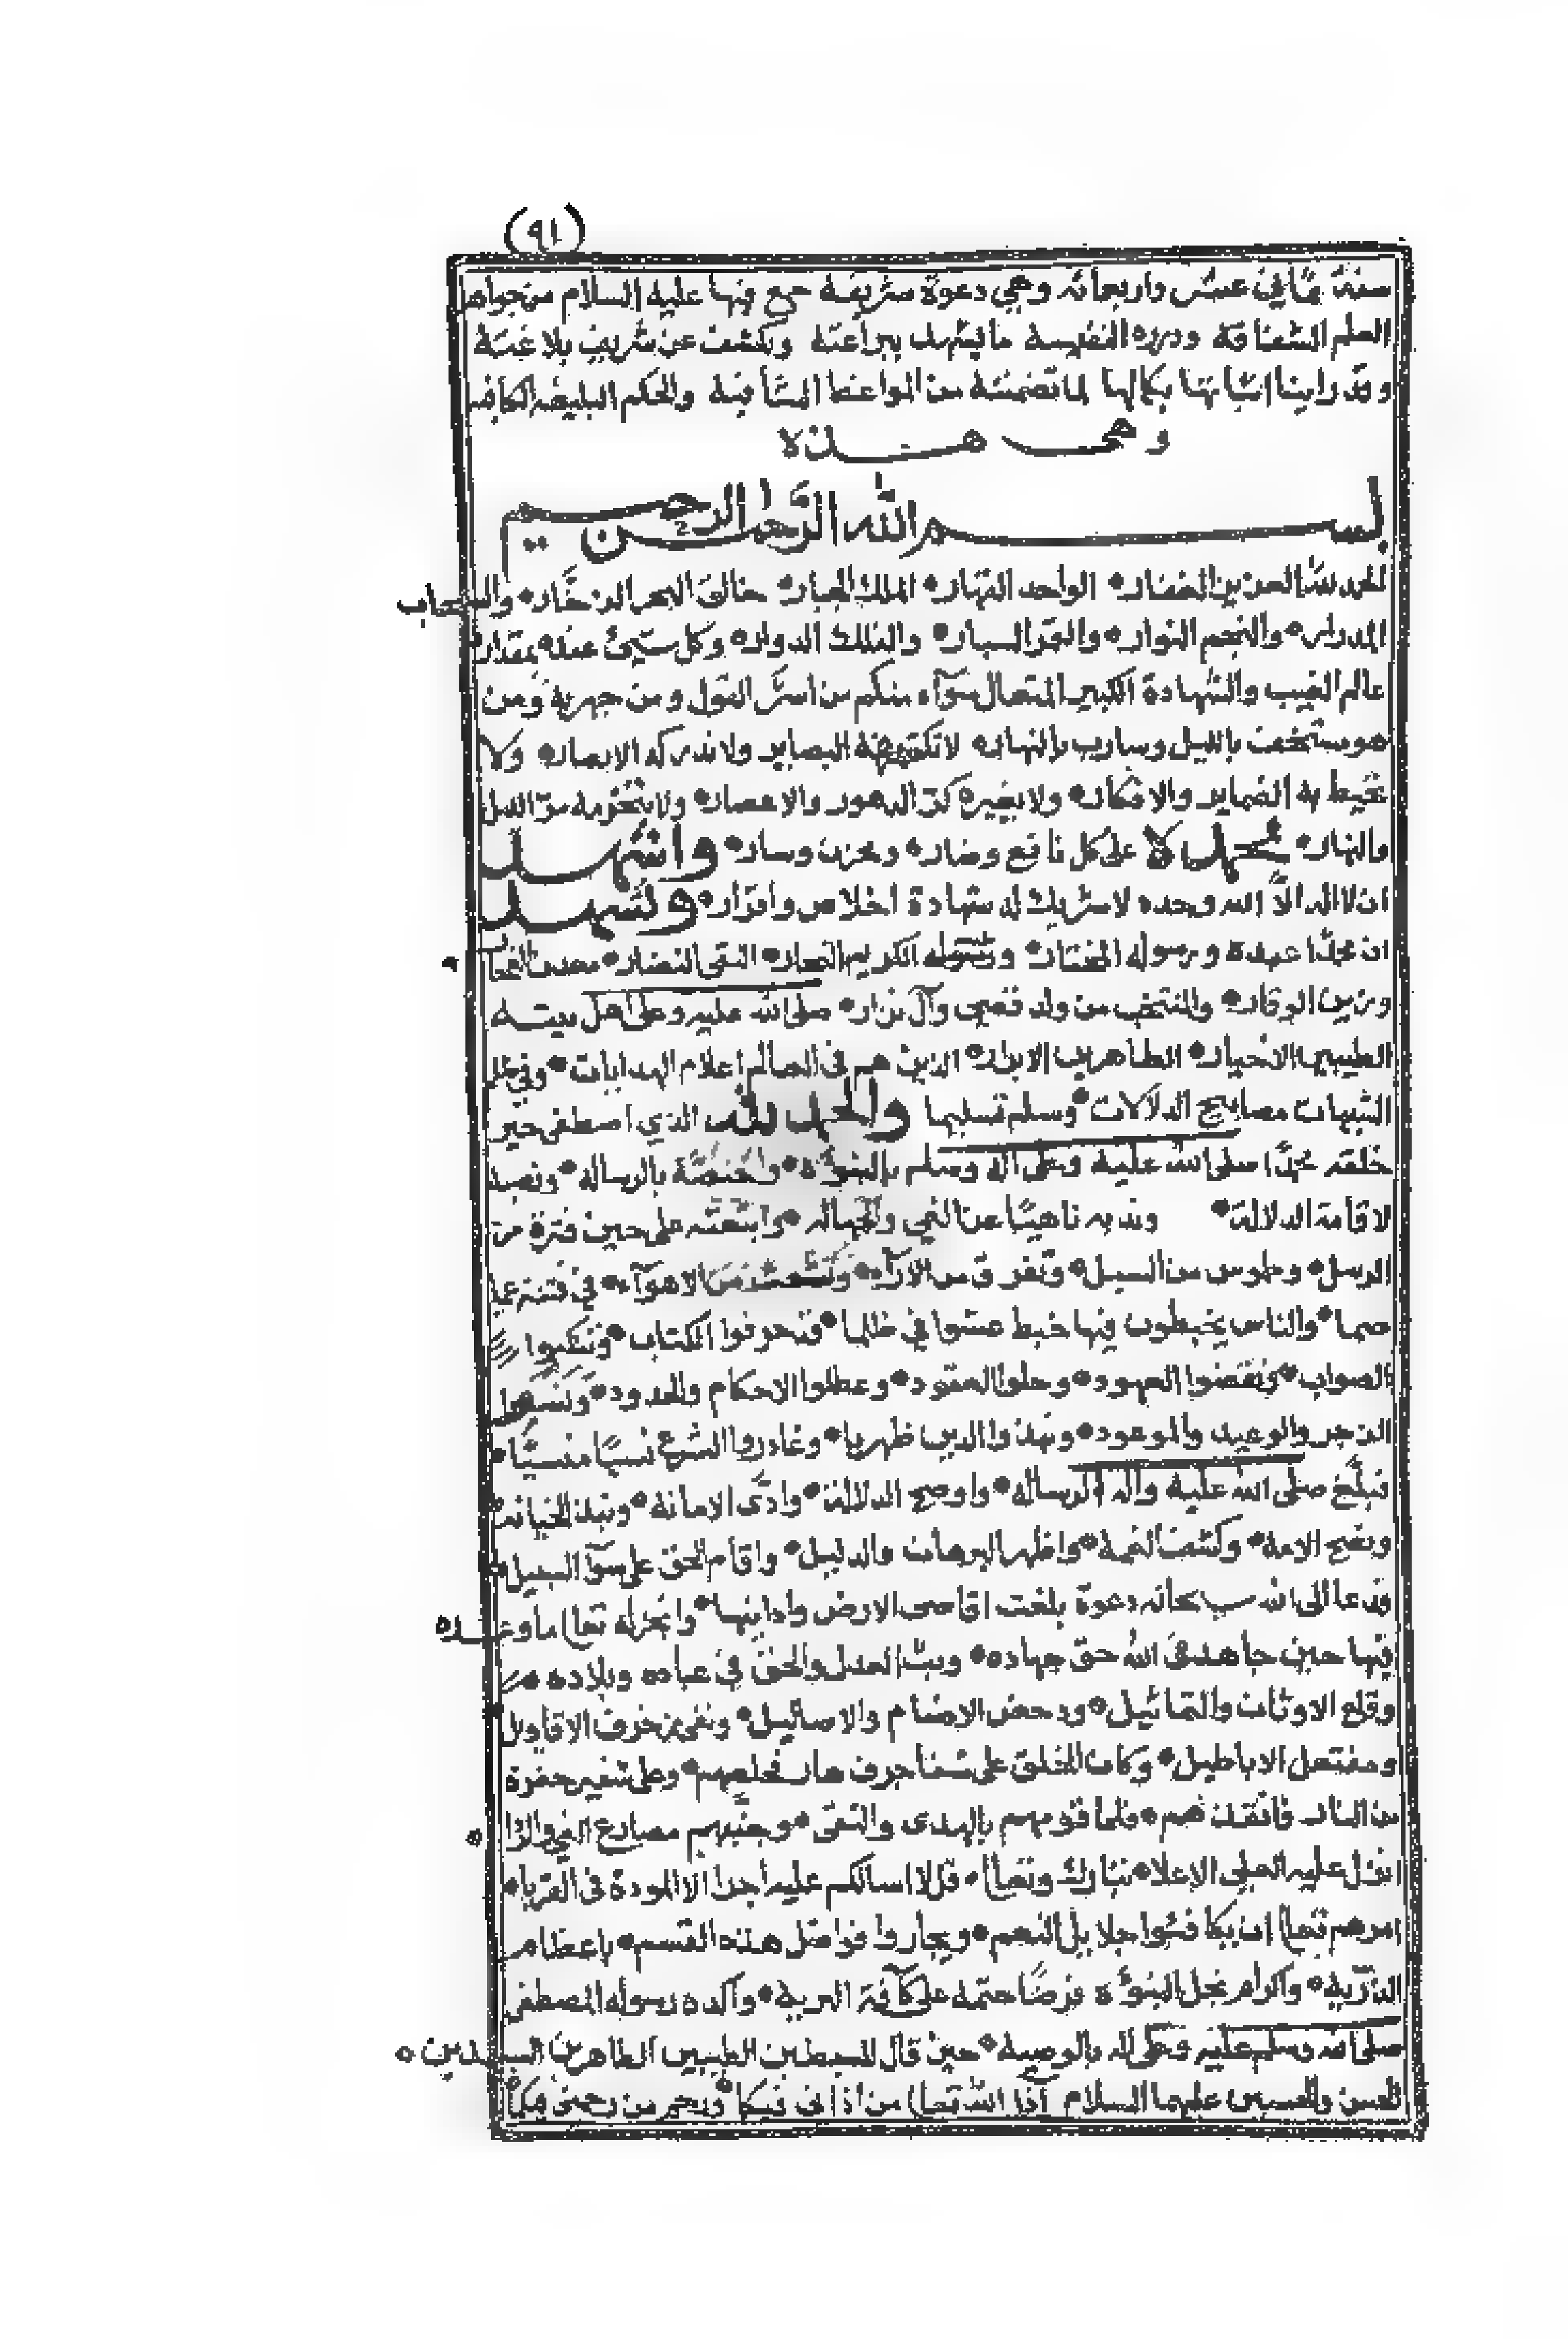 (٩١)
سنة ثماني عشر واربعمائه وهي دعوة شريفة جمع فيها عليه السلام من جواهر
العلم الشفافة ودرره النفيسة ما يشهد ببراعته ويكشف عن شريف بلاغته
وقد راينا اثباتها بكمالها لما تضمنته من المواعظ الشافية والحكم البليغه الكافيه
وهي هذه
بسم الله الرحمن الرحيم
الحمد لله العزيز الغفار الواحد القهار الملك الجبار خالق البحر الزخّار والسحاب
المدرار والنجم النوار والقمر السيار والفلك الدوار وكل شيئ عنده بمقدار
عالم الغيب والشهادة الكبير المتعال سوآء منكم من اسرّ القول ومن جهر به ومن
هو مستخف بالليل وسارب بالنهار لا تكتنهه البصاير ولا تدركه الابصار ولا
تحيط به الضماير والافكار ولا يغيره كرّ الدهور والاعصار ولا يتخرمه مرّ الليل
والنهار نحمده على كل نافع وضار ومحزن وسار واشهد
ان لا اله الاّ الله وحده لا شريك له شهادة اخلاص واقرار ونشهد
ان محمّدا عبده ورسوله المختار الكريم النجار التقي النضار معدن الفخار
وزين الوقار والمنتخب من ولد قصي وآل نزار صلى الله عليه وعلى اهل بيته
الطيبين الاخيار الطاهرين الابرار الذين هم في العالم اعلام الهدايات وفي ظلم
الشبهات مصابيح الدلالات وسلم تسليما والحمد لله الذي اصطفى خير
خلقه محمّدا صلى الله عليه وعلى اله وسلم بالنبوّة واختصّه بالرساله ونصبه
لاقامة الدلالة وندبه ناهيًا عن الغي والجهاله وابتعثه على حين فترة من
الرسل وطموس من السبل وتفرق من الارآء وتشعث من الاهوآء في فتنة عميا
صما والناس يخبطون فيها خبط عشوا في ظلما قد حرفوا الكتاب وتنكبوا
الصواب ونقضوا العهود وحلوا العقود وعطلوا الاحكام والحدود ونسوا
الزجر والوعيد والموعود ونبذوا الدين ظهريا وغادروا الشرع نسيًا منسيًّا
فبلّغ صلى الله عليه واله الرساله واوضح الدلالة وادّى الامانة ونبذ الخيانة
ونصح الامة وكشف الغمة واظهر البرهان والدليل واقام الحق على سوآ السبيل
ودعا الى الله سبحانه دعوة بلغت اقاصي الارض وادانيها وانجز له تعالى ما وعده
فيها حين جاهد في الله حق جهاده وبثّ العدل والحق في عباده وبلاده
وقلع الاوثان والتماثيل ودحض الاصنام والاضاليل ونفى زخرف الاقاويل
ومفتعل الاباطيل وكان الخلق على شفا جرف هار فخلصهم وعلى شفير حفرة
من النار فانقذهم ولما قومهم بالهدى والتقى وجنبهم مصارع الغي والردا
انزل عليه العلي الاعلا تبارك وتعالى قل لا اسالكم عليه اجرا الا المودة في القربا
امرهم تعالى ان يكافئوا جلايل النعم ويجاروا فواضل هذه القسم باعظام
الذرّية واكرام نجل النبوّة فرضًا حتمه على كآفة البرية واكده رسوله المصطفى
صلى الله وسلم عليه وعلى اله بالوصية حين قال للسبطين الطيبين الطاهرين السيدين
الحسن والحسين عليهما السلام آذا الله تعالى من اذاني فيكما ورحم من رحمني فيكما